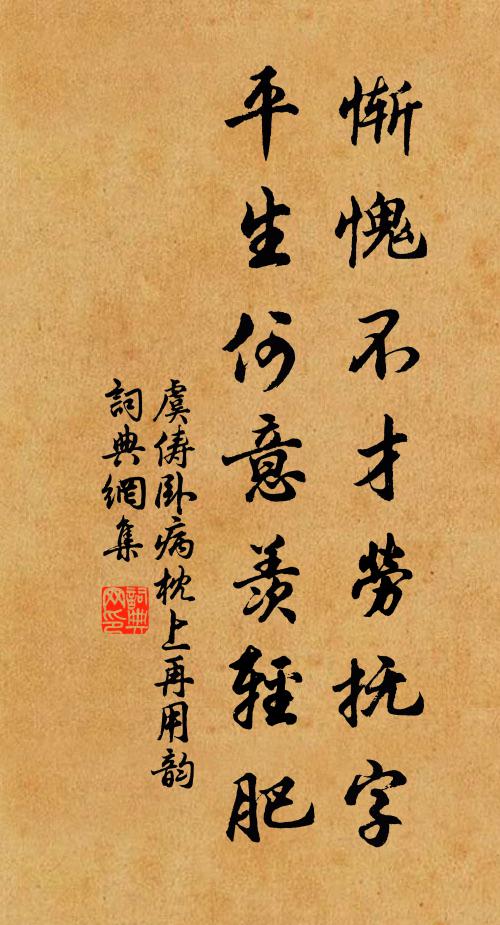 慚愧不才勞抚字
平生何意羨輕肥
虞俦卧病枕上再用韵
詞典網集
詞典网印